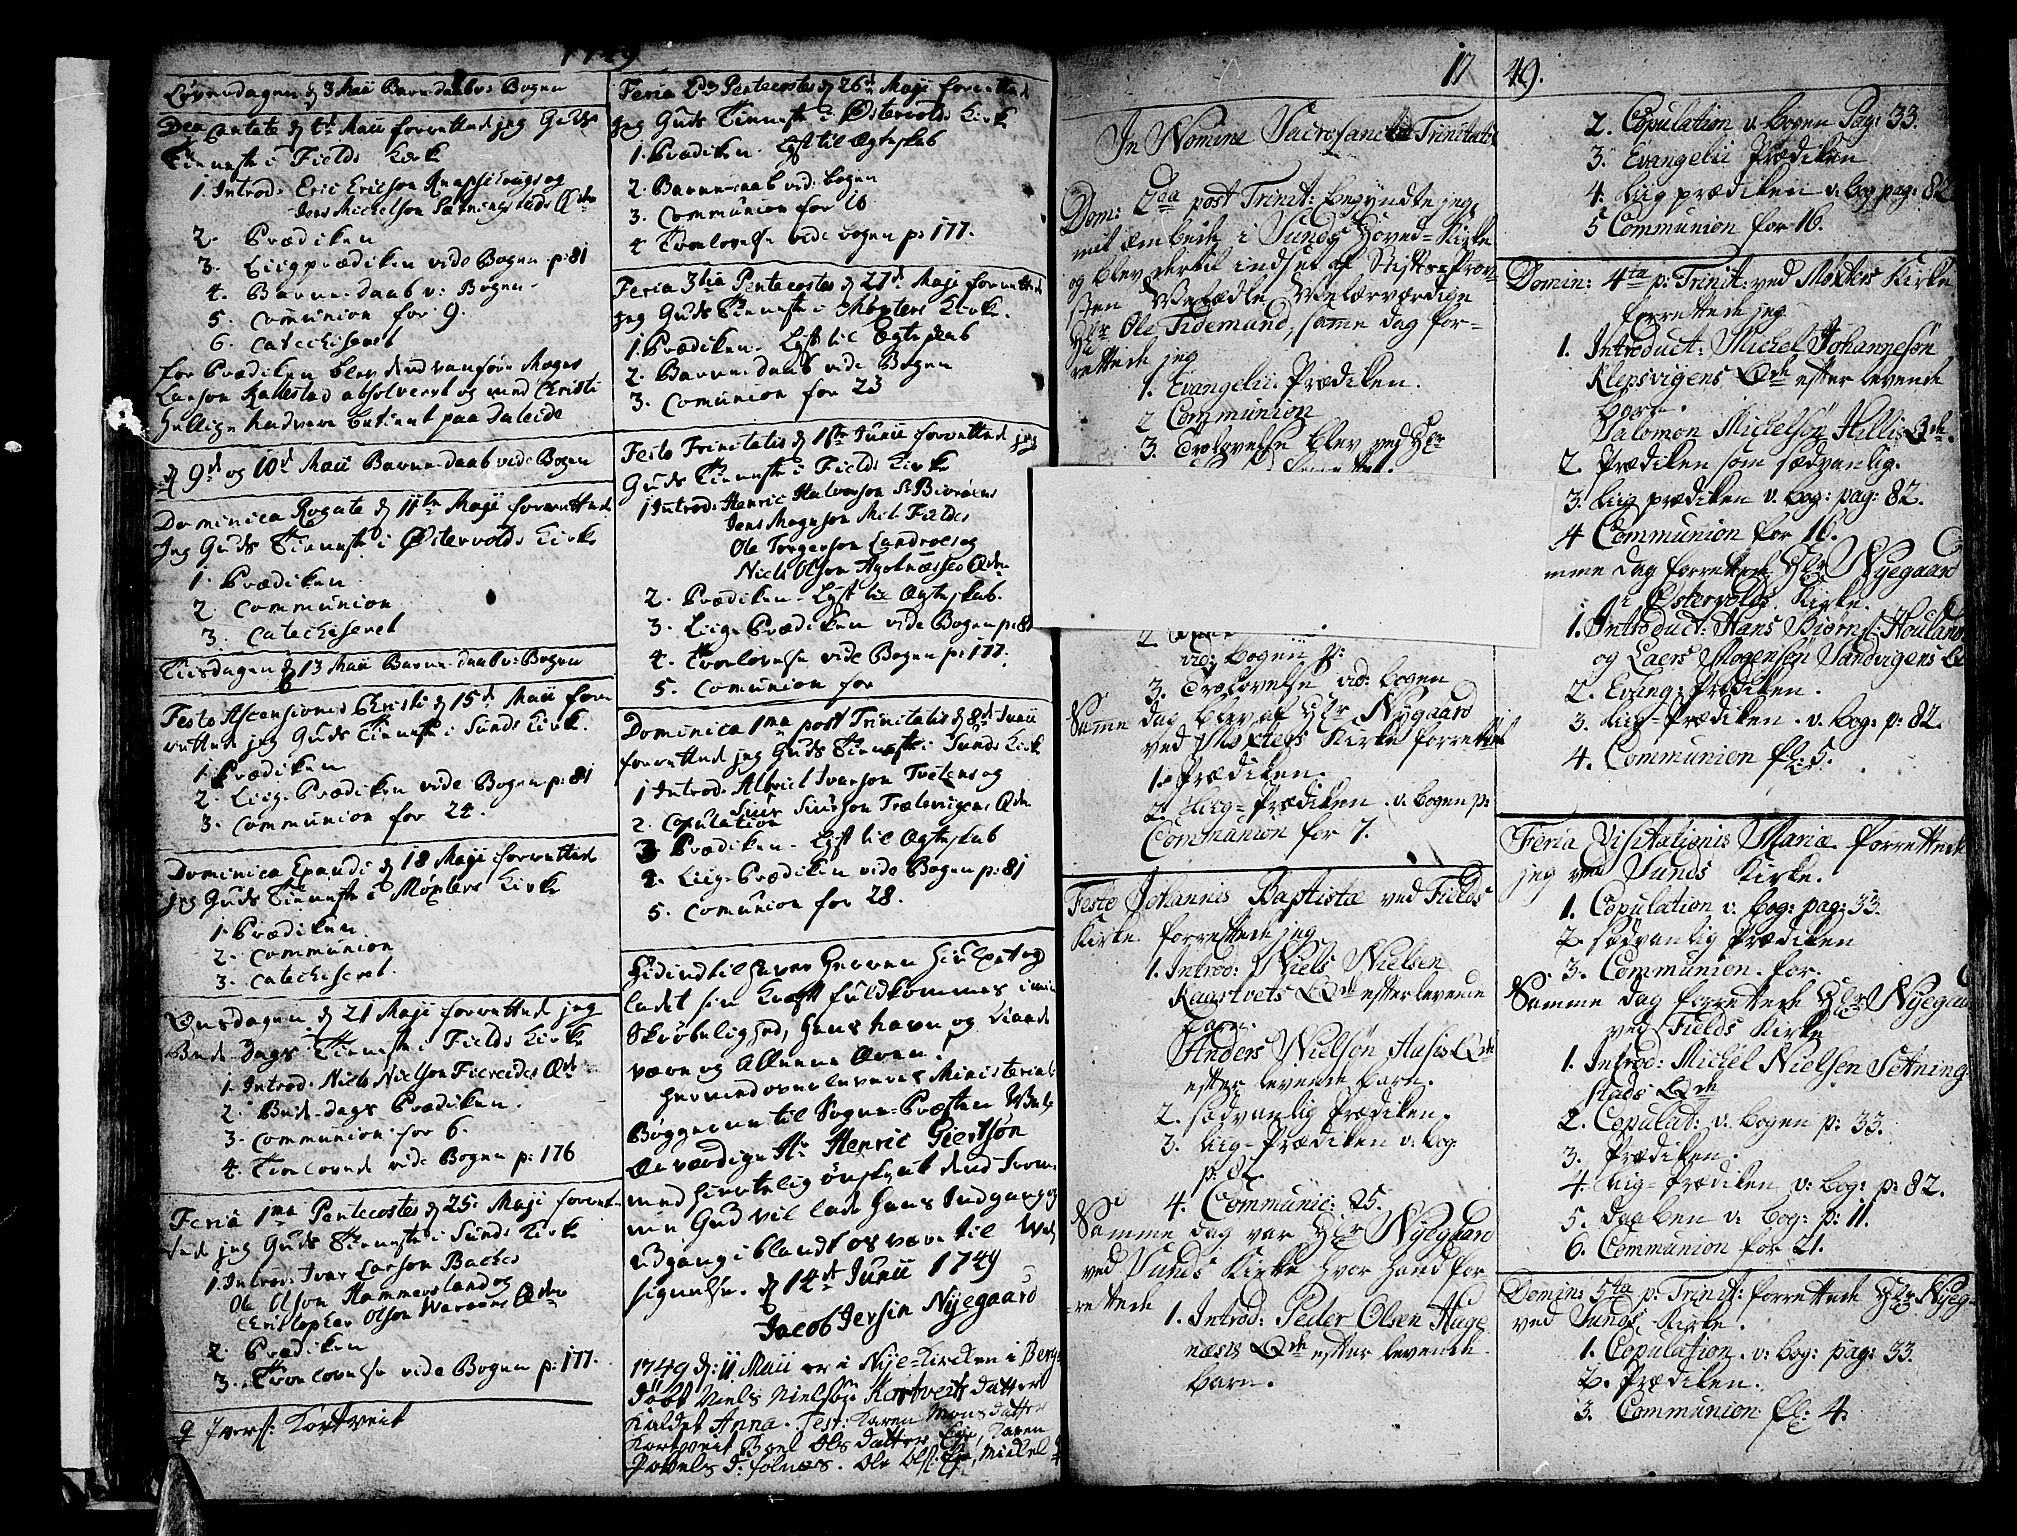 1749
Løverdagen d 3 Maii Barne daab v: Bogen
Dca Cantate d 4d Maii forrettede jeg Guds
Tienneste i Fields Kirke
1. Introd: Eric Ericson Knapschougs og
Jens Michelson Sætningstads Qdn
2. Prædiken
3. Liigprædiken vide Bogen p: 81
4. Barne-daab v: Bogen
5. Communion for 9.
6. Catechiseret
for Prædiken blev vanføre Mogns
Larson Kallestad absolveret og med Christi
hellige betient paa
d 9d og 10d Maii Barne-daab vide Bogen
Dominica Rogate d 11te Maji forrettede
Jeg Guds Tienneste i Østervolds Kirke
1. Prædiken
2. Communion
3. Catechiseret
Tiisdagen d 13 Maii Barne-daab v: Bogen
Festo Ascensionis Christi d 15d Maii for-
rettede jeg Guds Tienneste i Sunds Kirke.
1. Prædiken
2. Liig-Prædiken vide Bogen p: 81
3. Communion for 24.
Dominica Exaudi d 18 Maji forrettede
jeg Guds Tienneste i Møxters Kirke
1. Prædiken
2. Communion
3. Catechiseret.
Onsdagen d 21 Maji forrettede jeg
Bede-Dags Tienneste i Fields Kirke
1. Introd: Niels Nielson Fiereides Qde
2. Bede-dags Prædiken.
3. Communion for 6.
4. Troelovede vide Bogen p: 176
Feria 1ma Pentecostes d 25: Maji forret-
tede jeg Guds Tienneste i Sunds Kirke
1. Introd: Ivar Larson Backes
Ole Olson Hammersland og
Christopher Olson Qdn
2. Prædiken
3. Troelovelse vide Bogen p: 177.
9 Ivers: Kortveit
Feria 2da Pentecostes d 26d Maji forrettede
Jeg Guds Tienneste i Østervolds Kirke
1. Prædiken. Lyst til Ægteskab
2. Barne-daab vid: bogen
3. Communion for 16
4 Troelovelse vide bogen p: 177.
Feria 3tia Pentecostes d 27d Maji forrettede
Jeg Guds Tienneste i Møxters Kirke.
1. Prædiken. Lyst til Ægteskab
2. Barne-daab vide Bogen
3. Comunion for 23
Festo Trinitatis d 1ste Junii forrettede jeg
Guds Tienneste i Fields Kirke
1 Introd: Henric Halvorson
Jens Mognson Mit-Fieldes
Ole Torgerson Landroes og
Niels Olson Agotnæsses Qdn
2. Prædiken. Lyst til Ægteskab.
3. Liig-Prædiken vide Bogen p: 8
4. Troelovelse vide Bogen p: 177.
5. Comunion for
Dominica 1ma post Trinitatis d 8d Junii
forrettede jeg Guds Tienneste i Sunds Kirk
1 Introd: Albrict Ivarson Tveitens og
Siur Siurson Trælevigens Qdn
2. Copulation
3 Prædiken. Lyst til Ægteskab
4. Liig-Prædiken vide Bogen p: 81
5. Comunion for 28.
Hidindtil haver Herren hiulpet og
ladet sin Kraft fuldkommes i min
Skrøbelighed, hans Navn og Naade
være og Allene Æren.
hermed overleveres Ministerial-
Bøggerne til Sogne-Præsten Vel-
ærværdige Hr Henric Giertsøn
med hiertelig ønske at dend from-
me Gud vil lade hans Indgang og
Udgang iblandt os være til Vel-
signelse. d 14de Junii 1749
Jacob Jersin Nyegaard
1749 d: 11 Maii er i Nye-Kirken i Berg:
døbt Niels Nielsøn Kortveits datter
kaldet Anna. Test: Karen Monsdatter
Kortveit Boel Olsdatter Eje, Karen
Povels D: Solnæs. Ole Ols: Eje, Mickel
17 49.
In Nomine Sacrosanctæ Trinitatis
Dom: 2da post Trinit: begyndte jeg
mit Embede i Sunds Hoved-Kirke
og blev dertil indset af Stiftsprov-
sten Velædle Velærværdige
Hr Ole Tidemand, same dag for-
rettede jeg
1. Evangelii Prædiken.
2 Communion
3. Trolovelse blev ved Hr
vid: bogen p:
3. Trolovelse vid: bogen
Samme dag blev af Hr Nygaard
ved Møxters Kirke forrettet
1. Prædiken.
2. Liig-Prædiken v: bogen p:
Communion for 7.
Festo Johannis Baptistæ ved Fields
Kirke forrettede jeg
1. Introd: Niels Nielsen
Kaartvets Qde efter levende
barn.
Anders Nielsøn Aases Qde
efter levende barn.
2. sædvanlig Prædiken.
3. Liig-Prædiken v: bog
p: 82.
4. Communic: 25.
Samme dag var Hr Nyegaard
ved Sunds Kirke hvor hand for-
rettede
1. Introd: Peder Olsen Hage
næses Qde efter levende
barn.
2. Copulation v: bogen Pag: 33.
3. Evangelii Prædiken
4. Liig prædiken v: bog pag: 82
5 Communion for 16.
Domin: 4ta p: Trinit: ved Møxters Kirke
forrettede jeg
1. Introduct: Michel Johannesøn
Klepsvigens Qde efter levende
barn.
Salomon Michelsøn Hillis Qde.
2. Prædiken som sædvanlig.
3. Liig prædiken v: bog: pag: 82.
4 Communion for 16.
mme dag forrettede Hr Nyegaard
i Østervolds Kirke.
1. Introduct: Hans Biørns: Houlands
og Laers Mogensøn Sandvigens Q
2. Evang: Prædiken.
3. Liig-Prædiken. v: bog: p: 82.
4. Communion fl: 5.
Feria Visitationis Mariæ forrettede
jeg ved Sunds Kirke.
1. Copulation v: bog: pag: 33.
2. sædvanlig Prædiken
3. Communion for.
Samme dag forrettede Hr Nyegaa
ved Fields Kirke
1. Introd: Michel Nielsen Setning-
stads Qde
2. Copulat: v: bogen p: 33.
3. Prædiken.
4. Liig-Prædiken v: bog: p: 82.
5. Daaben v: bog: p: 11.
6. Communion for 21.
Domin: 5ta p: Trinit: forrettede Hr Nyeg-
ved Sunds Kirke.
1. Copulation. v: bog: pag: 33.
2. Prædiken.
3. Communion fl: 4.